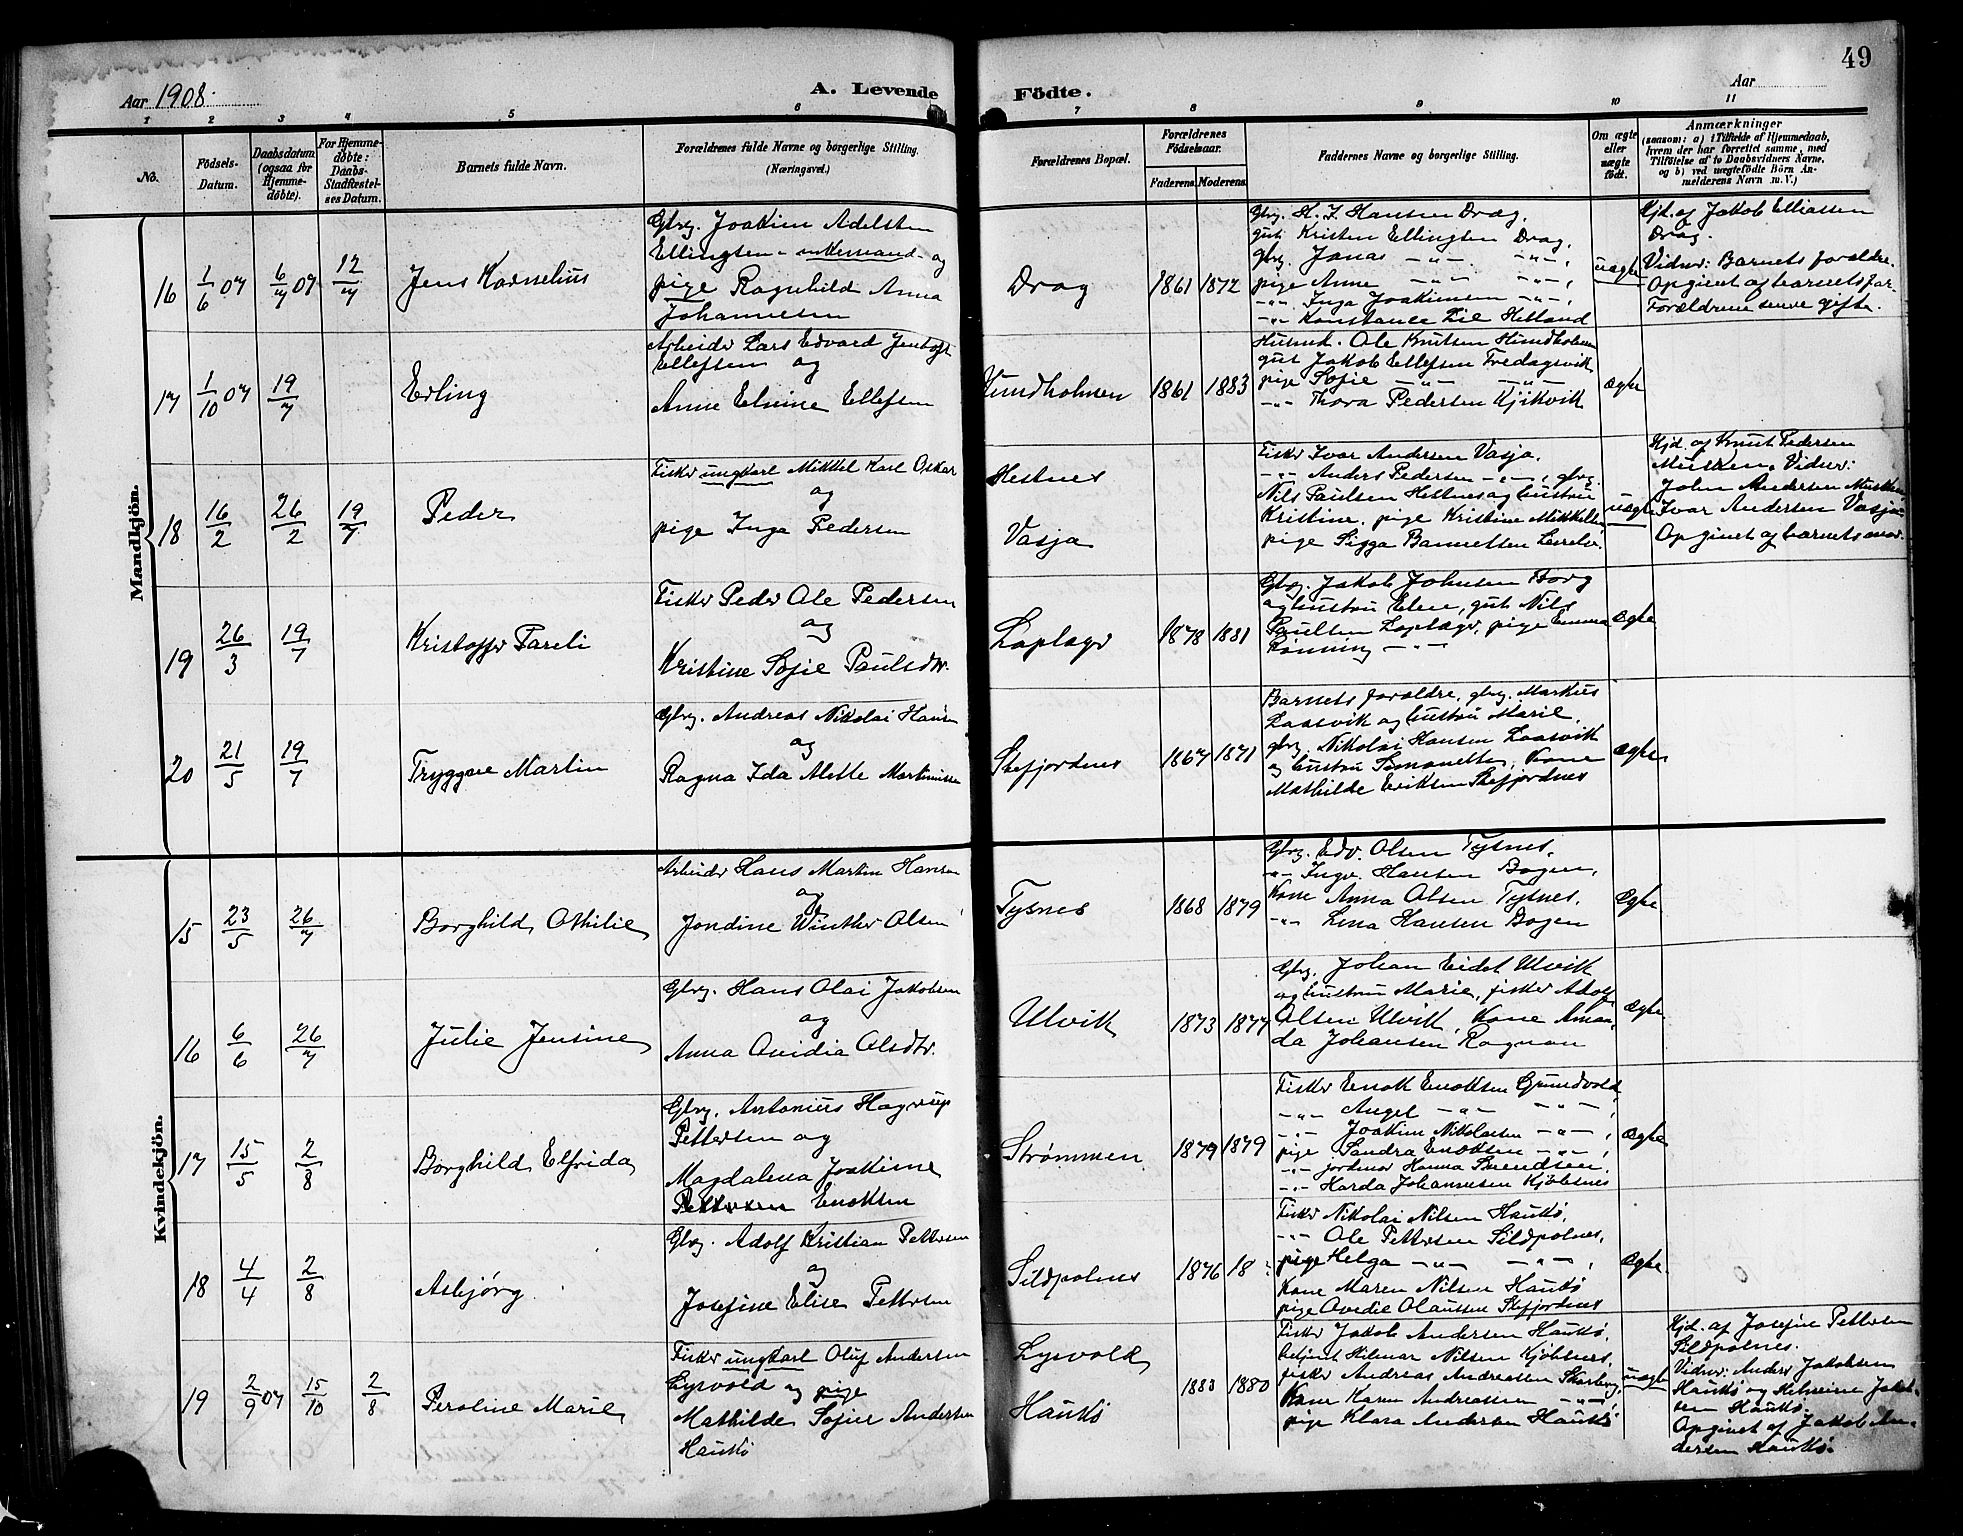 49
Aar 1908.
A. Levende Födte.
Aar
1 2 3 4 5 6 7 8 9 10 11
No.
Födsels-Datum.
Daabsdatum (ogsaa for Hjemme-døbte).
For Hjemme-døbte: Daabs-Stadfæstel-ses Datum.
Barnets fulde Navn.
Forældrenes fulde Navne og borgerlige Stilling. (Næringsvei.)
Forældrenes Bopæl.
Forældrenes Födselsaar.
Faderens. Moderens.
Faddernes Navne og borgerlige Stilling.
Om ægte eller uægte födt.
Anmærkninger
(saasom: a) i Tilfælde af Hjemmedaab, hvem der har forrettet samme, med Tilföielse af to Daabsvidners Navne, og b) ved uægtefödte Börn Anmelderens Navn m. V.)
Mandkjön.
16 1/6 07 6/7 07 12/7
Jens Kornelius
Gbrg. Joakim Adelsten
Ellingsen - enkemand - og
pige Ragnhild Anna
Johannesen
Drag 1861 1872
Gbrg. H. J. Hansen Drag,
gut Kristen Ellingsen Drag,
gbrg. Jonas -"- -"-,
pige Anne -"- -"-,
-"- Inga Joakimsen -"-,
-"- Konstance Lie Helland
uægte
Hjd. af Jakob Elliassen
Drag.
Vidner: Barnets forældre.
Opgivet af barnets far.
Forældrene senere gifte.
17 1/10 07 19/7
Erling
Arbeider Lars Edvard Jentoft
Ellefsen og
Anne Elvine Ellefsen
Hundholmen 1861 1883
Husmd. Ole Knutsen Hundholmen
gut Jakob Ellefsen Fredagsvik,
pige Sofie -"- -"-
-"- Thora Pedersen Kjikvik
ægte
18 16/2 26/2 19/7
Peder
Fisker ungkarl Mikkel Karl Oskar
og
pige Inga Pedersen
Hestnes
Vasja
Fisker Ivar Andersen Vasja.
-"- Anders Pedersen -"-, gbrg.
Nils Paulsen Hestnes og hustru
Kristine, pige Kristine Mikkelsen
pige Sigga
uægte
Hjd. af Knut Pedersen
Musken. Vidner:
John Andersen Musken
Ivar Andersen Vasja
Opgivet af barnets mor.
19 26/3 19/7
Kristoffer Pareli
Fisker Peder Ole Pedersen
og
Kristine Sofie Paulsdtr.
Laplagr 1878 1881
Gbrg. Jakob Johnsen Borg
og hustru Elen, gut Nils
Paulsen Laplagr, pige Emma
Ronning -"-
ægte
20 21/5 19/7
Tryggve Martin
Gbrg. Andreas Nikolai Hansen
og
Ragna Ida Alette Martinussen
Skefjordnes 1867 1871
Barnets forældre, gbrg. Markus
Laasvik og hustru Marie,
gbrg. Nikolai Hansen Laasvik
og hustru Simonette, Kone
Mathilde Eriksen Skefjordnes
ægte
Kvindekjön.
15 23/5 26/7
Borghild Othilie
Arbeider Hans Martin Hansen
og
Jondine Winther Olsen
Tysnes 1868 1879
Gbrg. Edv. Olsen Tysnes,
-"- Ingv. Hansen Bogen,
Kone Anna Olsen Tysnes,
-"- Lina Hansen Bogen
Ægte
16 6/6 26/7
Julie Jensine
Gbrg. Hans Olai Jakobsen
og
Anna Ovidia Olsdtr.
Ulvik 1873 1877
Gbrg. Johan Eidet Ulvik
og hustru Marie, fisker Adolf
Olsen Ulvik, Kone Aman-
da Johansen Rognan
Ægte
17 15/5 2/8
Borghild Elfrida
Gbrg. Antonius Hagerup
Pettersen og
Magdalena Joakime
Pettersen Enoksen
Strømmen 1879 1879
Fisker Enok Enoksen Grundvold,
-"- Angel -"- -"-,
-"- Joakim Nikolaisen -"-,
pige Sandra Enoksen -"-,
-"- jordmor Hanna Svendsen,
-"- Harda Johannesen Kjöbsnes
Ægte
18 4/4 2/8
Asbjørg
Gbrg. Adolf Kristian Pettersen
og
Josefine Elise Pettersen
Sildpolnes 1876 18
Fisker Nikolai Nilsen Haukö,
-"- Ole Pettersen Sildpolnes,
pige Helga -"- -"-,
Kone Maren Nilsen Haukö
pige Ovedie Olaussen Skefjordnes
Ægte
19 2/9 07 15/10 2/8
Peroline Marie
Fisker ungkarl Oluf Andersen
Lysvold og pige
Mathilde Sofie Andersen
Haukö
Lysvold
Haukö
1883 1880
Fisker Jakob Andersen Haukö,
betjent Hilmar Nilsen Kjöbsnes,
fisker Andreas Andreassen Skarberg,
Kone Karen Andreassen -"-,
pige Klara Andersen Haukö
uægte
Hjd. af Josefine Pettersen
Sildpolnes.
Vidner: Anders Jakobsen
Haukö og Helmine Jakob-
sen Haukö.
Opgivet af Jakob An-
dersen Haukö.